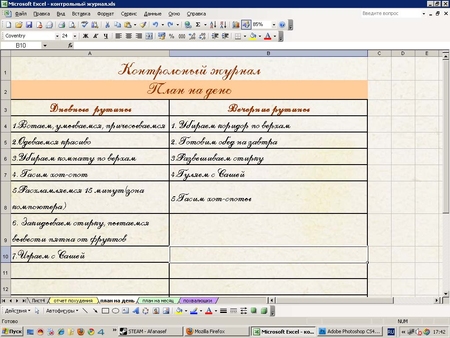 Microsoft Excel - контрольный журнал.xls
Файл Правка Вид Вставка Формат Сервис Данные Окно Справка
Введите вопрос
Coventry 24 85%
B10
A B C D E
1 Контрольный журнал
2 План на день
3 Дневные рутины Вечерние рутины
4 1.Встаем, умываемся, причесываемся 1. Убираем коридор по верхам
5 2.Одеваемся красиво 2. Готовим обед на завтра
6 3.Убираем комнату по верхам 3.Развешиваем стирку
7 4. Гасим хот-спот 4.Гуляем с Сашей
5.Расхламляемся 15 минут(зона
8 компютера) 5.Гасим хот-споты
6. Закидываем стирку, пытаемся
9 вывести пятна от фруктов
10 7.Играем с Сашей
11
12
Лист4 отчет похудения план на день план на месяц похвалюшки
Действия Автофигуры
Готово NUM
Пуск STEAM - Afanasef Mozilla Firefox Microsoft Excel - ко... Adobe Photoshop CS4... 17:42